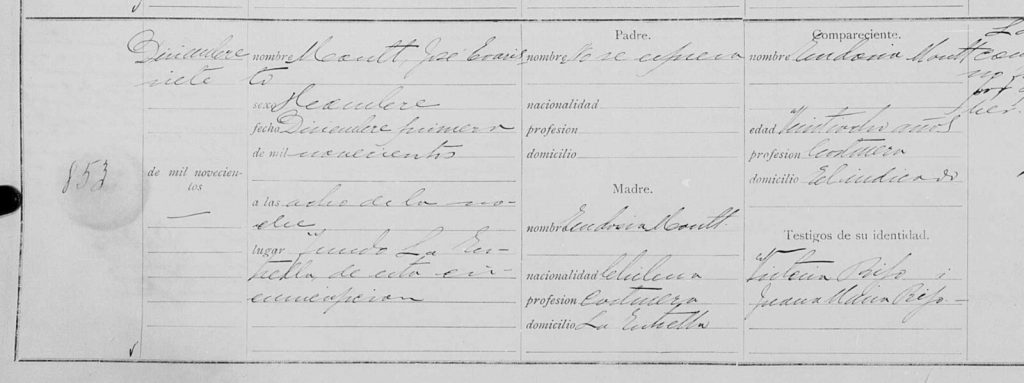 853
Diciembre
siete
de mil novecien-
tos
nombre Montt, José Evaris
to
sexo Hombre
fecha Diciembre primero
de mil novecientos
a las ocho de la no-
che
lugar "Fundo La Es-
trella de esta cir-
cunscripcion
Padre.
nombre No se espresa
nacionalidad
profesion
domicilio
Madre.
nombre Eudosia Montt.
nacionalidad Chilena
profesion Costurera
domicilio La Estrella
Compareciente.
nombre Eudosia Montt
edad Veintiocho años
profesion Costurera
domicilio El indicado
Testigos de su identidad.
Rifo i
Juana Maria Rifo-